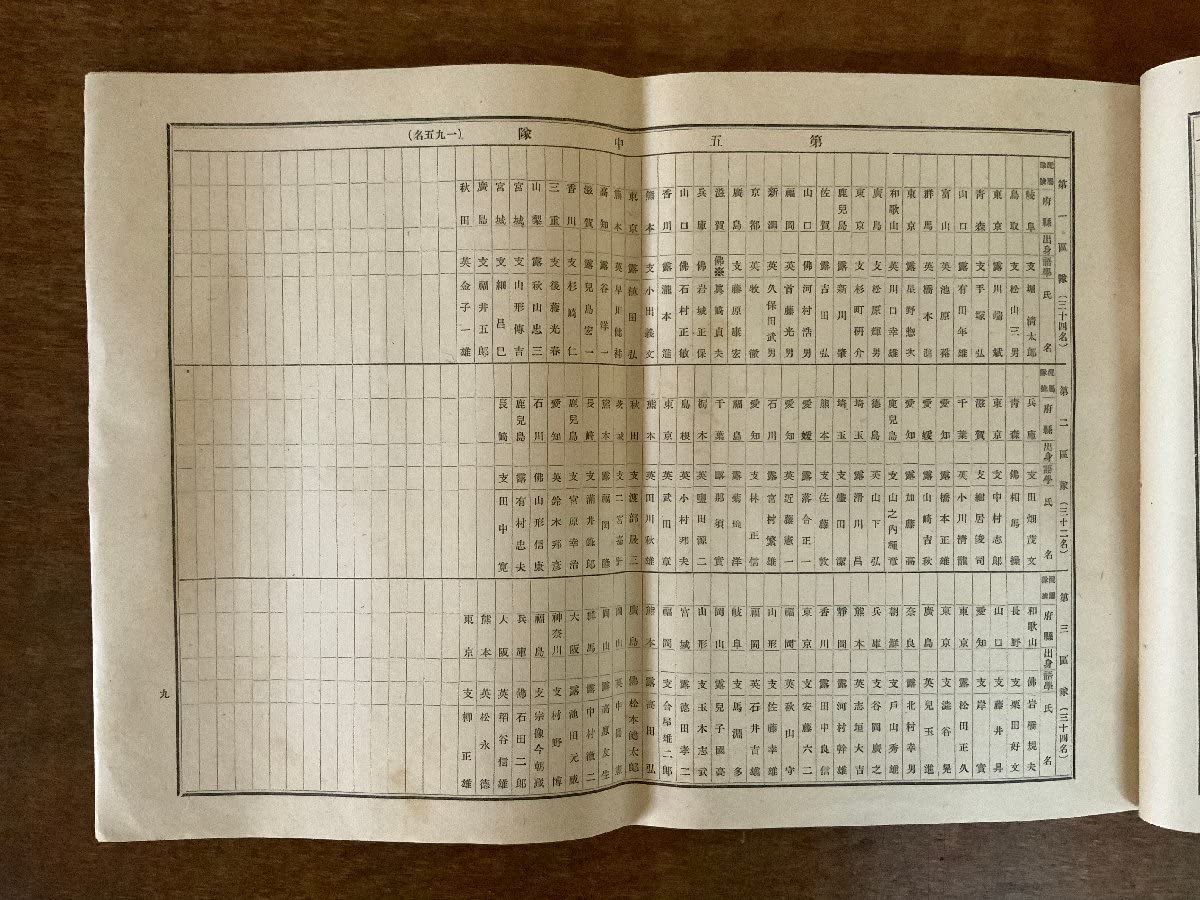 第五中隊（一九五名）
第一區隊（三十四名）
府縣 出身語學 氏名
岐阜 支 堀清太郎
鳥取 支 松山三男
東京 露 川端斌
青森 支 手塚弘
山口 露 有田年雄
富山 英 池原裕
群馬 英 橋本進
東京 露 星野惣次
和歌山 英 川口幸雄
廣島 支 松原輝男
東京 支 杉町研介
鹿兒島 露 新川肇
佐賀 露 吉田弘
山口 佛 河村浩男
福岡 英 首藤光男
新潟 英 久保田武男
京都 英 牧徹
廣島 支 藤原康宏
滋賀 佛英 眞崎貞夫
兵庫 佛 岩城正保
山口 佛 石村正敏
香川 露 瀧本進
熊本 支 小田義文
東京 露 弘
熊本 英 早川
高知 露 谷一
滋賀 露 兒島宏一
香川 支 杉崎仁
三重 支 後藤光春
山梨 露 秋山忠三
宮城 支 山形傳吉
宮城 支 細昌巳
廣島 支 福井五郎
秋田 英 金子一雄
第二區隊（三十二名）
府縣 出身語學 氏名
兵庫 支 田畑茂文
青森 佛 相馬操
東京 支 中村志郎
滋賀 支 細居俊司
千葉 英 小川清龍
愛知 露 橋本正雄
愛媛 露 山崎吉秋
愛知 露 加藤高
鹿兒島 支 山之內種彦
德島 英 山下弘
埼玉 露 滑川昌
埼玉 支 盛田潔
熊本 支 佐藤敦
愛媛 露 落合正一
愛知 英 近藤憲一
石川 露 富村繁雄
愛知 支 林正信
福島 露 菊地洋
千葉 露 那須實
栃木 英 鹽田源二
島根 英 小村邦夫
東京 英 武田章
熊本 英 田川秋雄
秋田 支 渡部晟三
茨城 支 二宮
熊本 露 福岡隆
長崎 支 浦井郎
鹿兒島 支 宮原幸治
愛知 英 鈴木邦彦
石川 佛 山形信康
鹿兒島 露 有村忠夫
長崎 支 田中寛
第三區隊（三十四名）
府縣 出身語學 氏名
和歌山 佛 岩橋規夫
長野 支 栗田好文
山口 支 藤井昇
愛知 支 岸實
東京 露 松田正久
東京 支 澁谷晃
廣島 英 兒玉進
奈良 露 北村幸男
朝鮮 支 戶山秀吉
兵庫 支 谷岡廣之
熊本 英 志垣大吉
靜岡 露 河村幹雄
香川 露 田中良信
東京 支 安藤六二
福岡 英 秋山守
山形 支 佐藤幸雄
福岡 英 石井吉雄
岐阜 支 馬淵多
岡山 露 兒子國高
山形 支 玉木志武
宮城 露 德田孝二
福岡 支 合屋雄二郎
熊本 露 高田弘
廣島 佛 松本德太郎
岡山 英 中
岡山 露 高原友生
群馬 露 中村徹二
大阪 露 池田元威
神奈川 支 村野博
福島 支 宗像今朝茂
兵庫 佛 石田二郎
大阪 英 稻谷信雄
熊本 英 松永德
東京 支 柳正雄
九